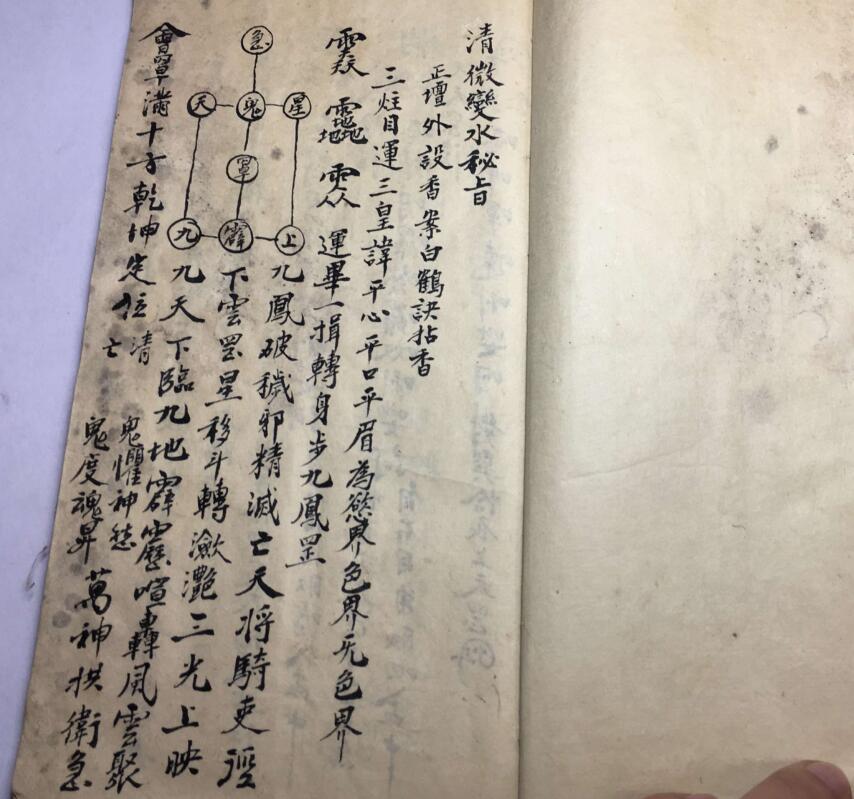 清微變水秘旨
正壇外設香案白鶴訣拈香
三炷目運三皇諱平心平口平眉為慾界色界旡色界
運畢一揖轉身步九鳳罡
急
天 鬼 星
罩
九 霹 上
九鳳破穢邪精滅亡天将騎吏徑
下雲罡星移斗轉瀲灔三光上映
九天下臨九地霹靂喧轟風雲聚
會罩滿十方乾坤定位
清
亡
鬼懼神愁
鬼度魂昇
萬神拱衛急